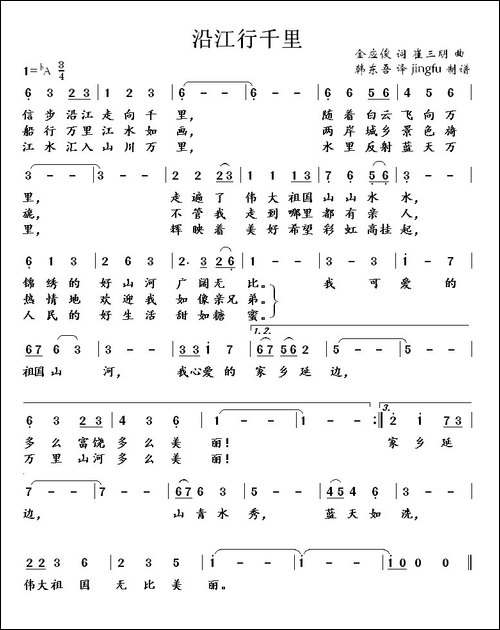 沿江行千里
1=♭A 3/4
金应俊 词 崔三明 曲
韩东吾 译 jingfu 制谱
6 3 2 3 | 1 2 3 | 6 - - | 6 - - | 6 3 2 3 | 1 2 3
信步沿江走向千里, 随着白云飞向万
船行万里江水如画, 两岸城乡景色旖
江水汇入山川万里, 水里反射蓝天万
3 - - | 3 - - | 2 2 2 3 | 5 5 5 6 | 7 6 5 6 | 3 - -
里, 走遍了伟大祖国山山水水,
旎, 不管我走到哪里都有亲人,
里, 辉映着美好希望彩虹高挂起,
6 1 3 | 2 6 3 | 2 · 3 2 6 | 6 - - | 3 - 1 | 1 · 7
锦绣的好山河广阔无比。 我可爱的
热情地欢迎我如像亲兄弟。
人民的好生活甜如糖蜜。
1.2.
6 7 6 3 | 3 - - | 3 3 3 1 7 | 6 7 5 6 2 | 5 - - | 5 - -
祖国山河, 我心爱的家乡延边,
3.
6 3 2 3 | 4 3 6 | 1 - - | 1 - - :| 2 1 7 3
多么富饶多么美丽! 家乡延
万里山河多么美丽!
7 - - | 7 - - | 6 7 5 3 | 5 - - | 4 5 4 6 | 3 - -
边, 山青水秀, 蓝天如洗,
2 2 3 6 | 6 · 2 | 2 3 5 | 1 - - | 1 - - | 1 0 0 0 0 ‖
伟大祖国无比美丽。